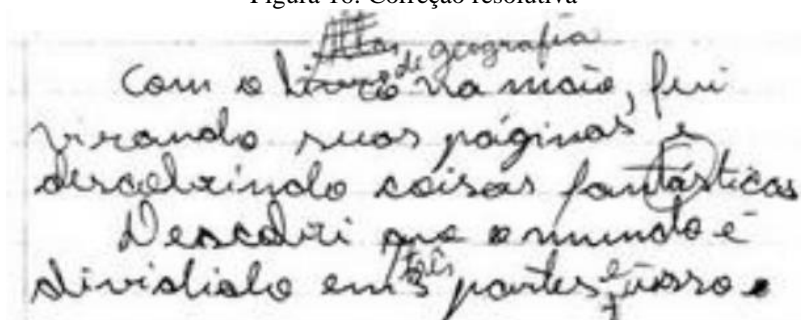 Figura 18: Correção resolutiva
Atlas de geografia
Com o livro na maõ, fui
virando suas páginas e
descobrindo coisas fantásticas
Descobri que o mundo é
dividido em 3 três partes e